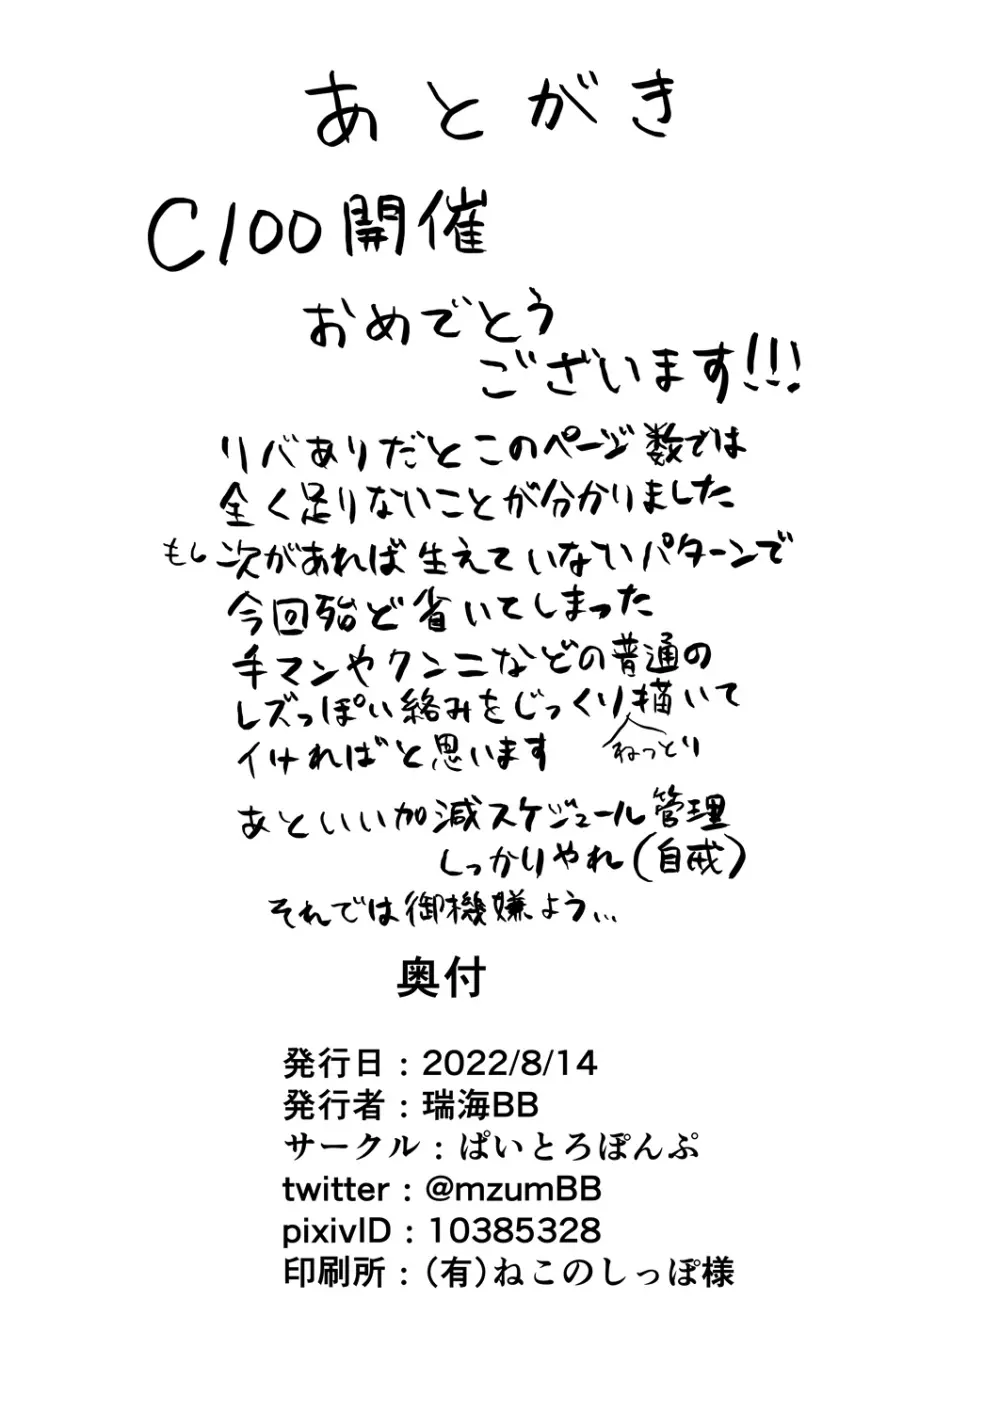 あとがき
C100開催
おめでとう
ございます!!!
リバありだとこのページ数では
全く足りないことが分かりました
もし次があれば生えていないパターンで
今回殆ど省いてしまった
手マンやクンニなどの普通の
レズっぽい絡みをじっくり描いて
ねっとり
イければと思います
あといい加減スケジュール管理
しっかりやれ(自戒)
それでは御機嫌よう...
奥付
発行日：2022/8/14
発行者：瑞海BB
サークル：ぱいとろぽんぷ
twitter：@mzumBB
pixivID：10385328
印刷所：(有)ねこのしっぽ様